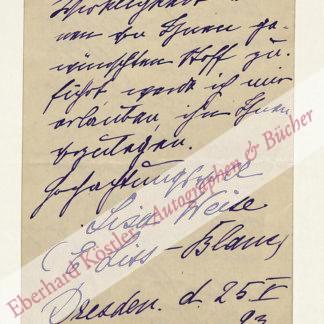 nen von Ihnen ge-
wünschten Stoff zu-
führt werde ich mir
erlauben, ihn Ihnen
vorzulegen.
Hochachtungsvoll
Lisa Weise
Dresden. d. 25 V
93
Eberhard Köstler Autographen & Bücher